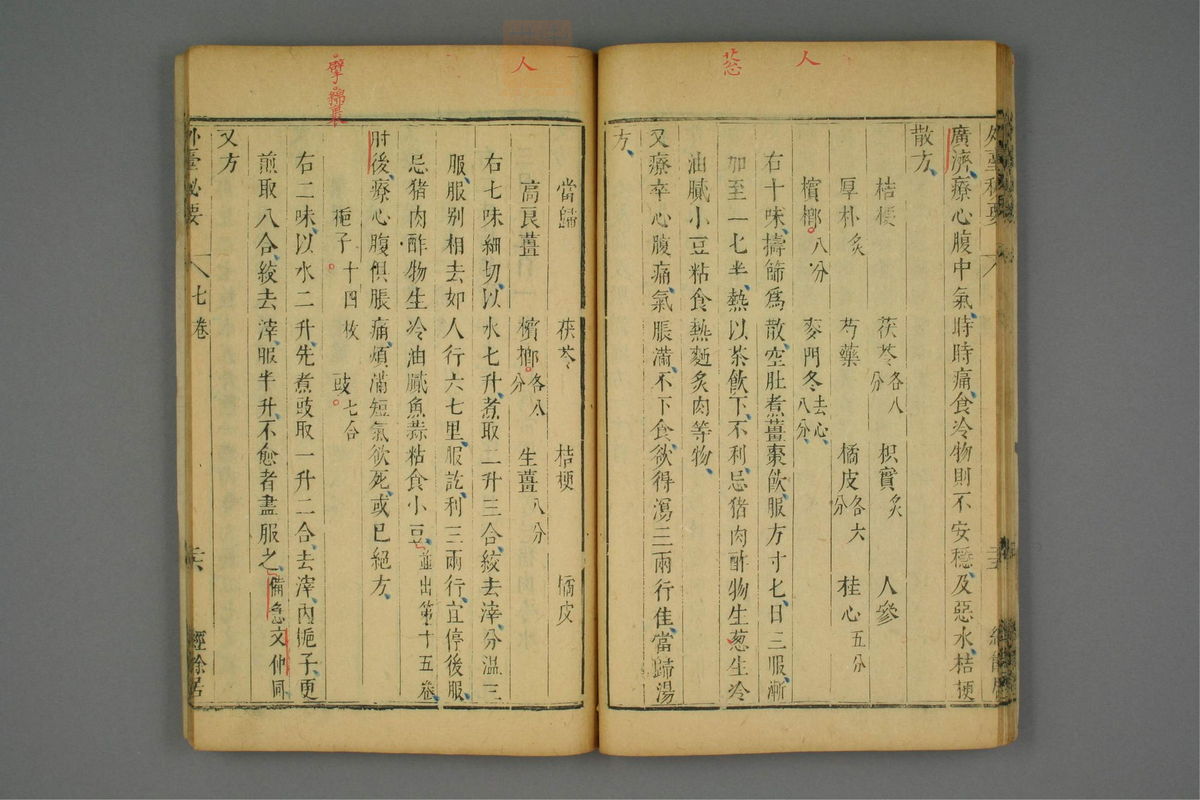 人
蒠
廣濟療心腹中氣時時痛食冷物則不安穩及惡水桔梗
散方
桔梗 茯苓各八分 枳實炙 人參
厚朴炙 芍藥 橘皮各六分 桂心五分
檳榔八分 麥門冬去心八分
右十味擣篩爲散空肚煮薑棗飲服方寸七日三服漸
加至一七半熱以茶飲下不利忌猪肉酢物生葱生冷
油膩小豆粘食熱麵炙肉等物
又療卒心腹痛氣脹滿不下食欲得瀉三兩行佳當歸湯
方
人
擘綿裹
當歸 茯苓 桔梗 橘皮
高良薑 檳榔各八分 生薑八分
右七味細切以水七升煮取二升三合絞去滓分温三
服服别相去如人行六七里服訖利三兩行宜停後服
忌猪肉酢物生冷油膩魚蒜粘食小豆並出第十五卷
肘後療心腹俱脹痛煩滿短氣欲死或已絕方
梔子十四枚 豉七合
右二味以水二升先煮豉取一升二合去滓內梔子更
煎取八合絞去滓服半升不愈者盡服之備急文仲同
又方
外臺秘要 七卷 經餘居